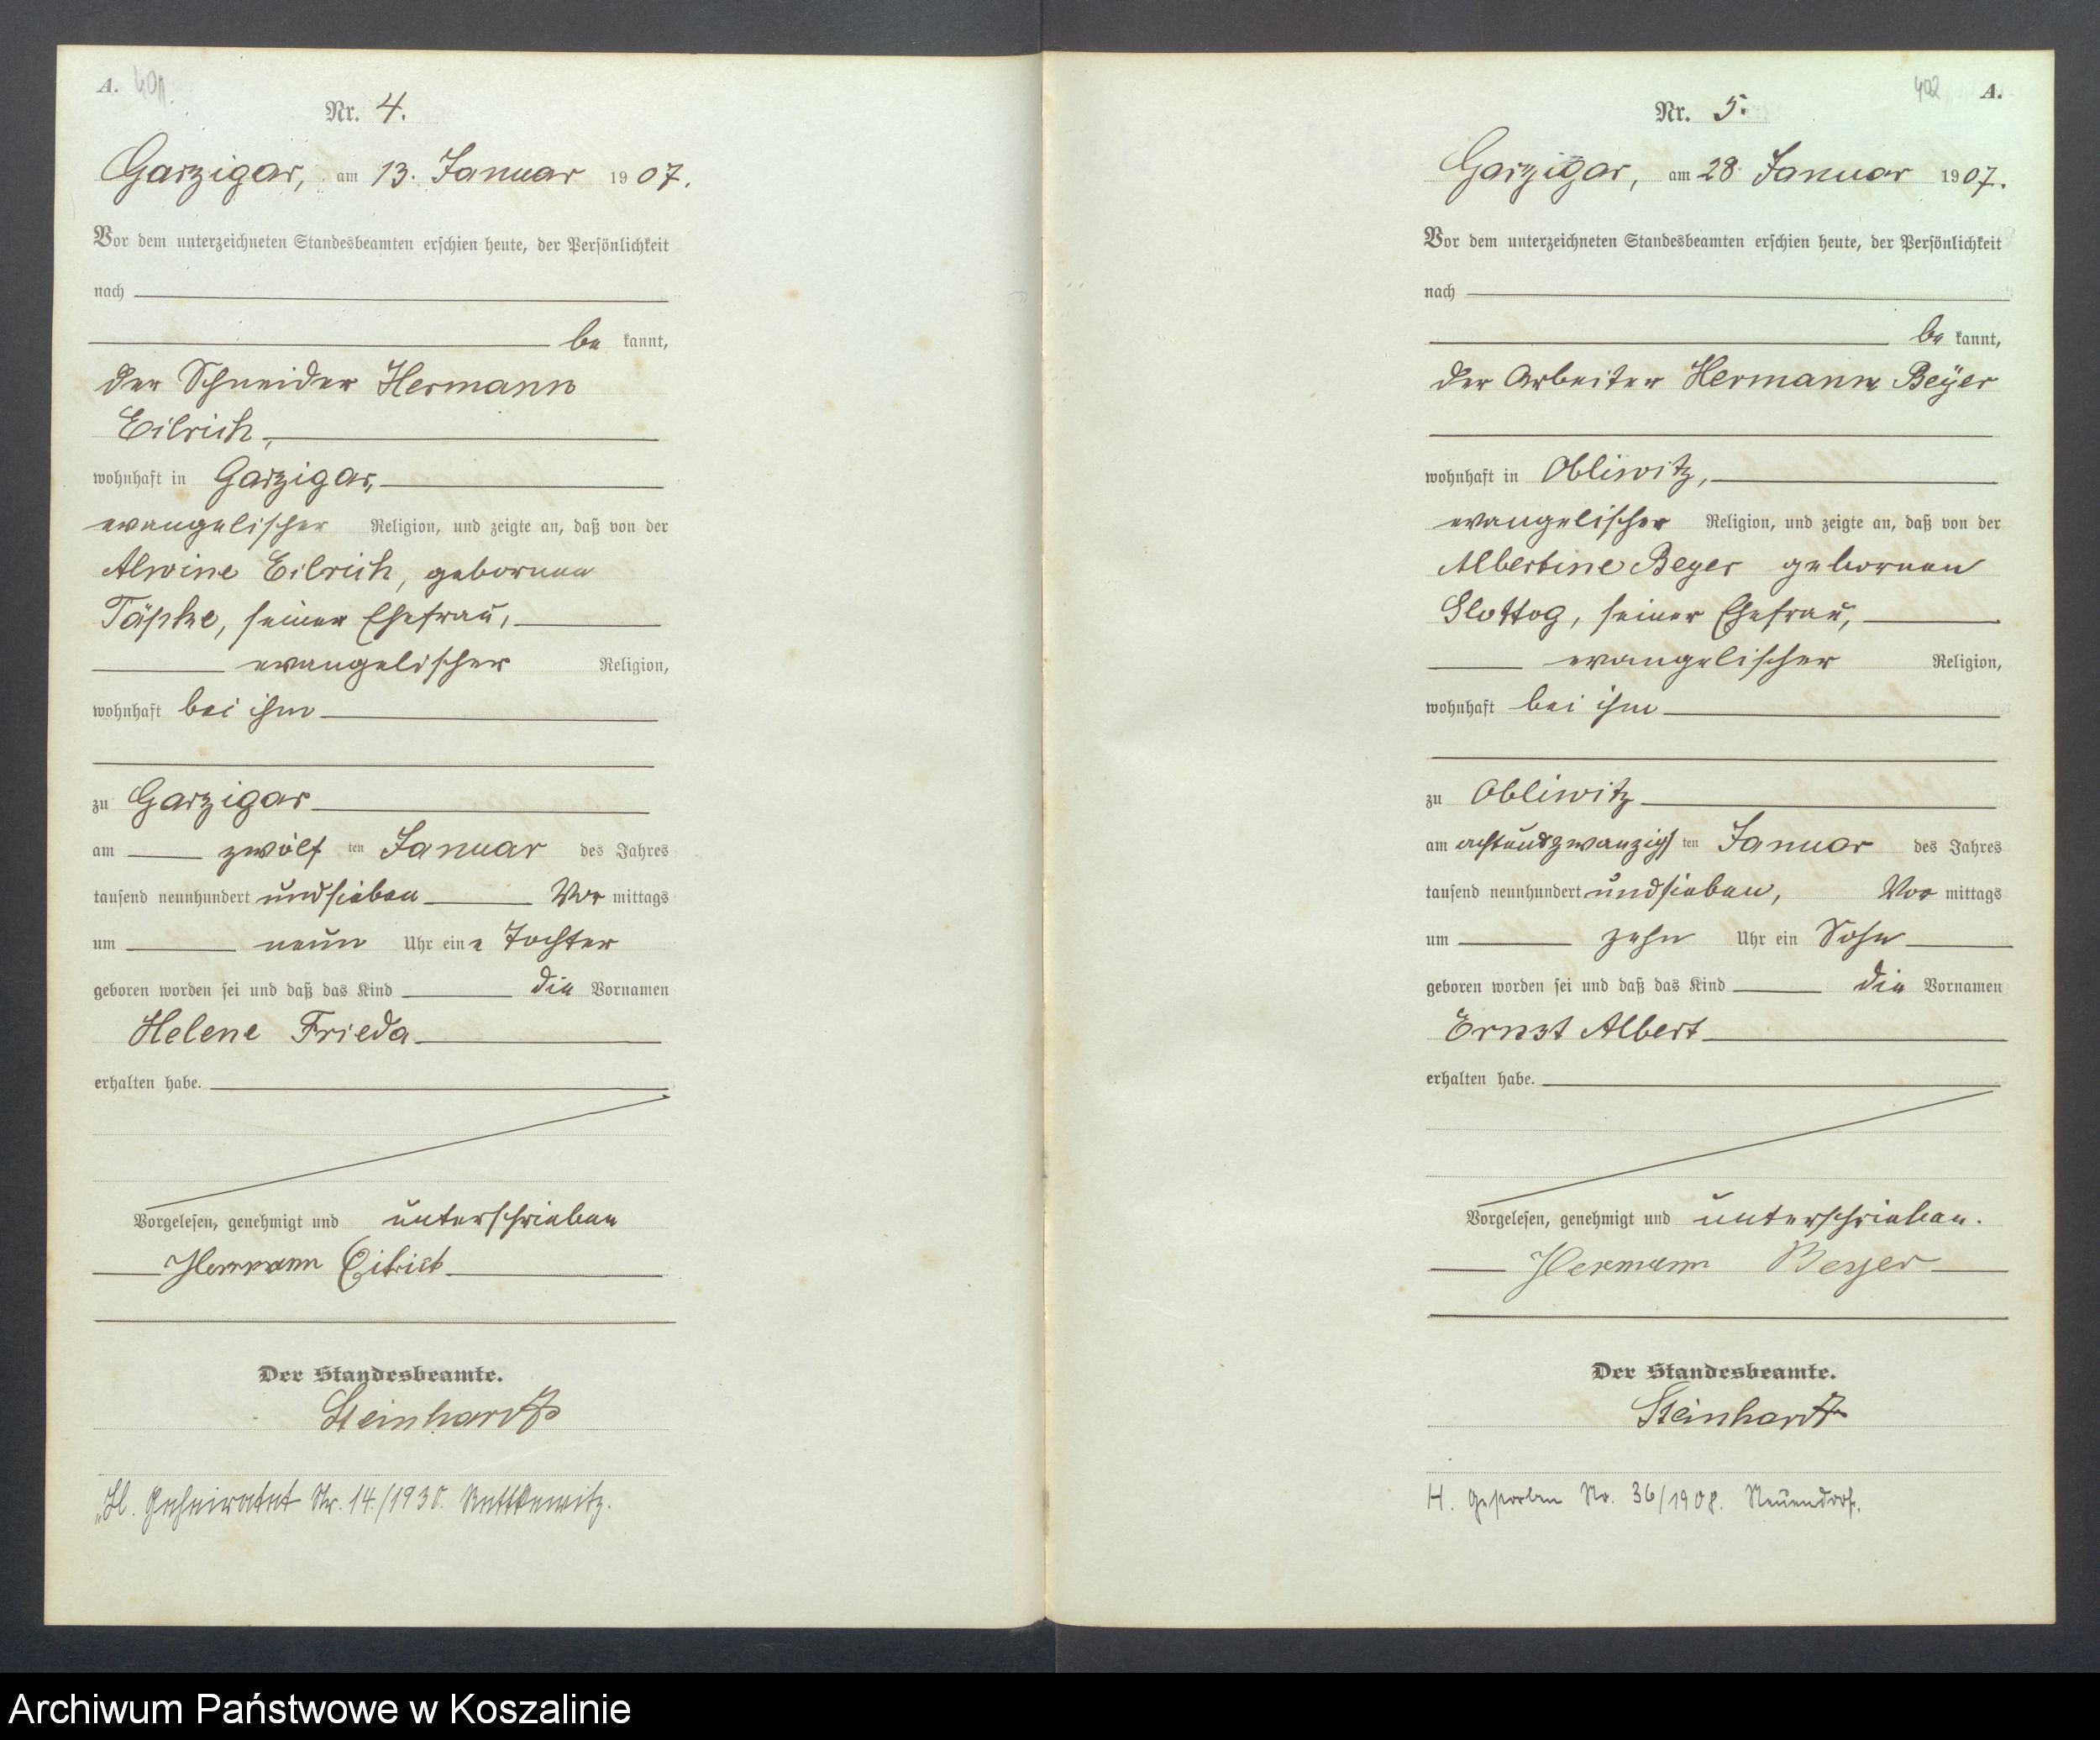 A. 401
Nr. 4.
Garzigar, am 13. Januar 1907.
Vor dem unterzeichneten Standesbeamten erschien heute, der Persönlichkeit
nach
be kannt,
der Schneider Hermann
Eilrich,
wohnhaft in Garzigar,
evangelischer Religion, und zeigte an, daß von der
Alwine Eilrich, geborenen
Täpke, seiner Ehefrau,
evangelischer Religion,
wohnhaft bei ihm
zu Garzigar
am zwölf ten Januar des Jahres
tausend neunhundert und sieben Vor mittags
um neun Uhr eine Tochter
geboren worden sei und daß das Kind die Vornamen
Helene Frieda
erhalten habe.
Vorgelesen, genehmigt und unterschrieben
Hermann Eilrich
Der Standesbeamte.
Steinhardt
Geheiratet Nr. 14./1930.
402 A.
Nr. 5.
Garzigar, am 28. Januar 1907.
Vor dem unterzeichneten Standesbeamten erschien heute, der Persönlichkeit
nach
be kannt,
der Arbeiter Hermann Beÿer
wohnhaft in Obliwitz,
evangelischer Religion, und zeigte an, daß von der
Albertine Beyer geborenen
seiner Ehefrau,
evangelischer Religion,
wohnhaft bei ihm
zu Obliwitz
am achtundzwanzigs ten Januar des Jahres
tausend neunhundert und sieben, Vor mittags
um zehn Uhr ein Sohn
geboren worden sei und daß das Kind die Vornamen
Ernst Albert
erhalten habe.
Vorgelesen, genehmigt und unterschrieben.
Hermann Beyer
Der Standesbeamte.
Steinhardt
H. Gestorben Nr. 36/1908. Neuendorf.
Archiwum Państwowe w Koszalinie